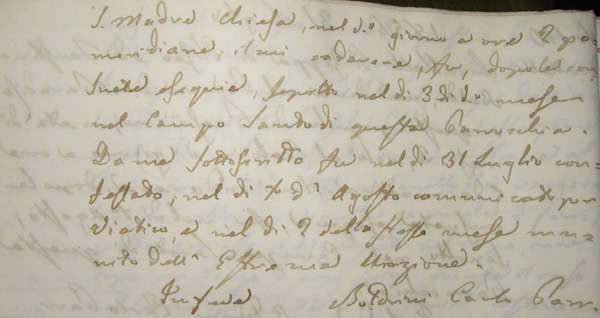 S. Madre Chiesa, nel d.º giorno a ore 2 po=
meridiane; il cui cadavere, fu, dopo le con
suete esequie, sepolto nel dì 3 di d.º mese
nel Campo Santo di questa Parrochia.
Da me sottoscritto fu nel dì 31 Luglio con
fessato, nel dì d' Agosto comunicato per
Viatico, e nel dì 2 dello stesso mese mu=
nito dell' Estrema Unzione.
In fede Boldrini Carlo Parr.